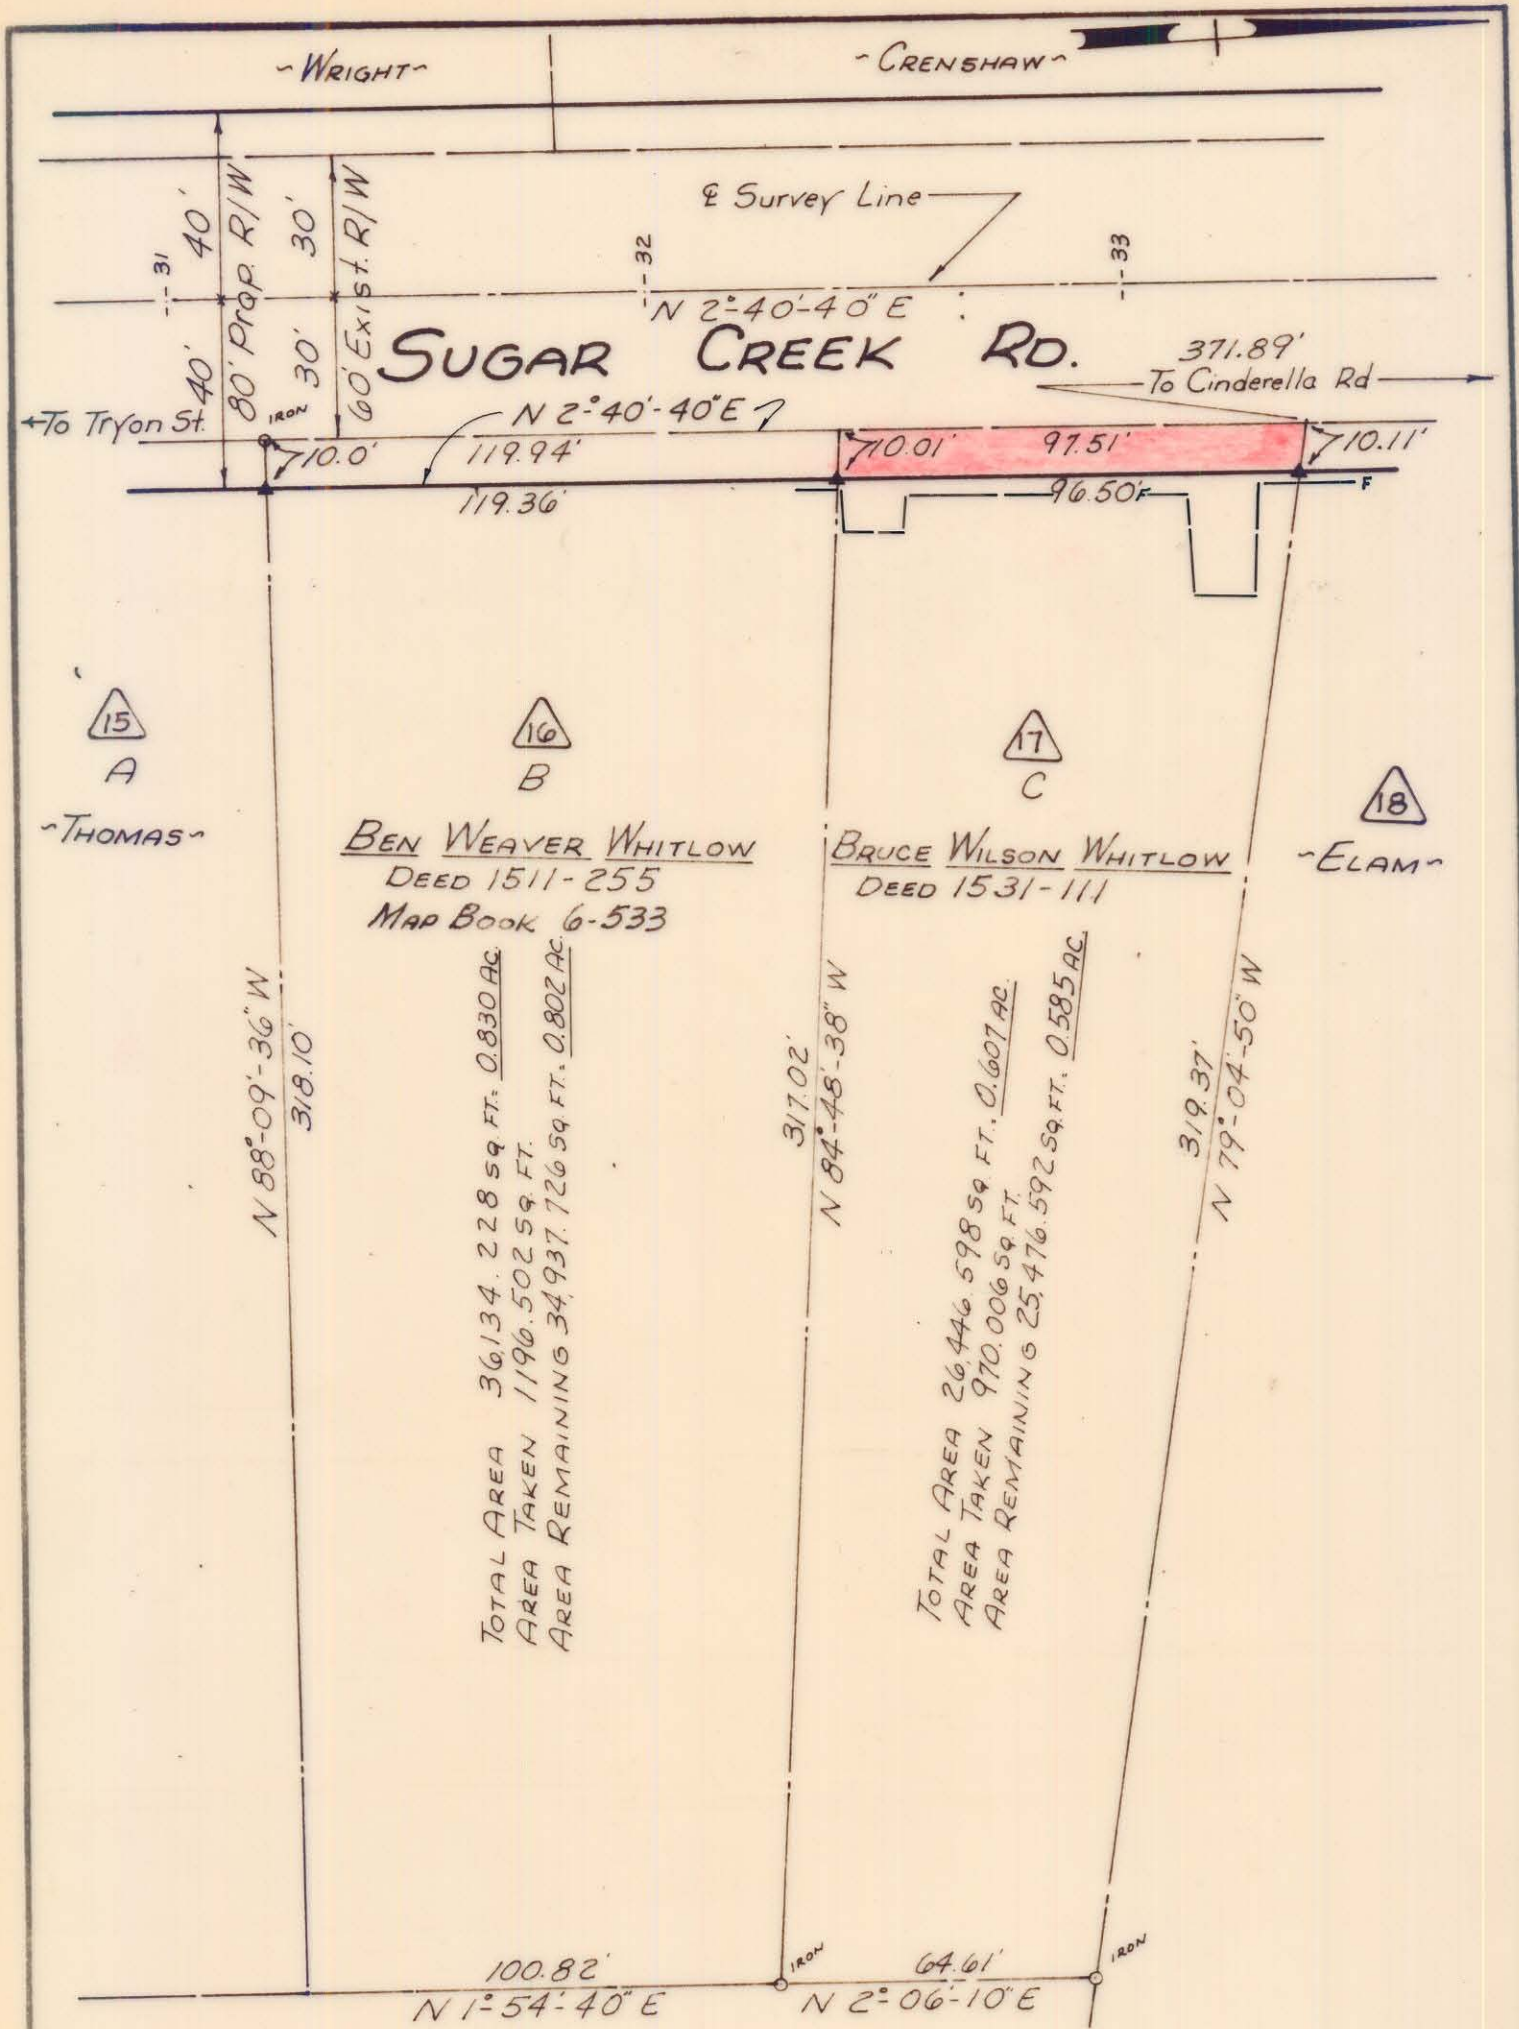 ~WRIGHT~
~CRENSHAW~
40'
80' Prop. R/W
30'
60' Exist. R/W
℄ Survey Line
--31
--32
--33
N 2°-40'-40" E
40'
30'
SUGAR CREEK RD.
371.89'
To Cinderella Rd
←To Tryon St.
IRON
N 2°-40'-40" E
10.0'
119.94'
10.01'
97.51'
10.11'
119.36'
96.50'
F
F
15
A
~THOMAS~
16
B
BEN WEAVER WHITLOW
DEED 1511-255
MAP BOOK 6-533
17
C
BRUCE WILSON WHITLOW
DEED 1531-111
18
~ELAM~
N 88°-09'-36" W
318.10'
TOTAL AREA 36,134.228 SQ. FT. = 0.830 AC.
AREA TAKEN 1196.502 SQ. FT.
AREA REMAINING 34,937.726 SQ. FT. = 0.802 AC.
317.02'
N 84°-48'-38" W
TOTAL AREA 26,446.598 SQ. FT. = 0.607 AC.
AREA TAKEN 970.006 SQ. FT.
AREA REMAINING 25,476.592 SQ. FT. = 0.585 AC.
319.37'
N 79°-04'-50" W
100.82'
N 1°-54'-40" E
IRON
64.61'
N 2°-06'-10" E
IRON